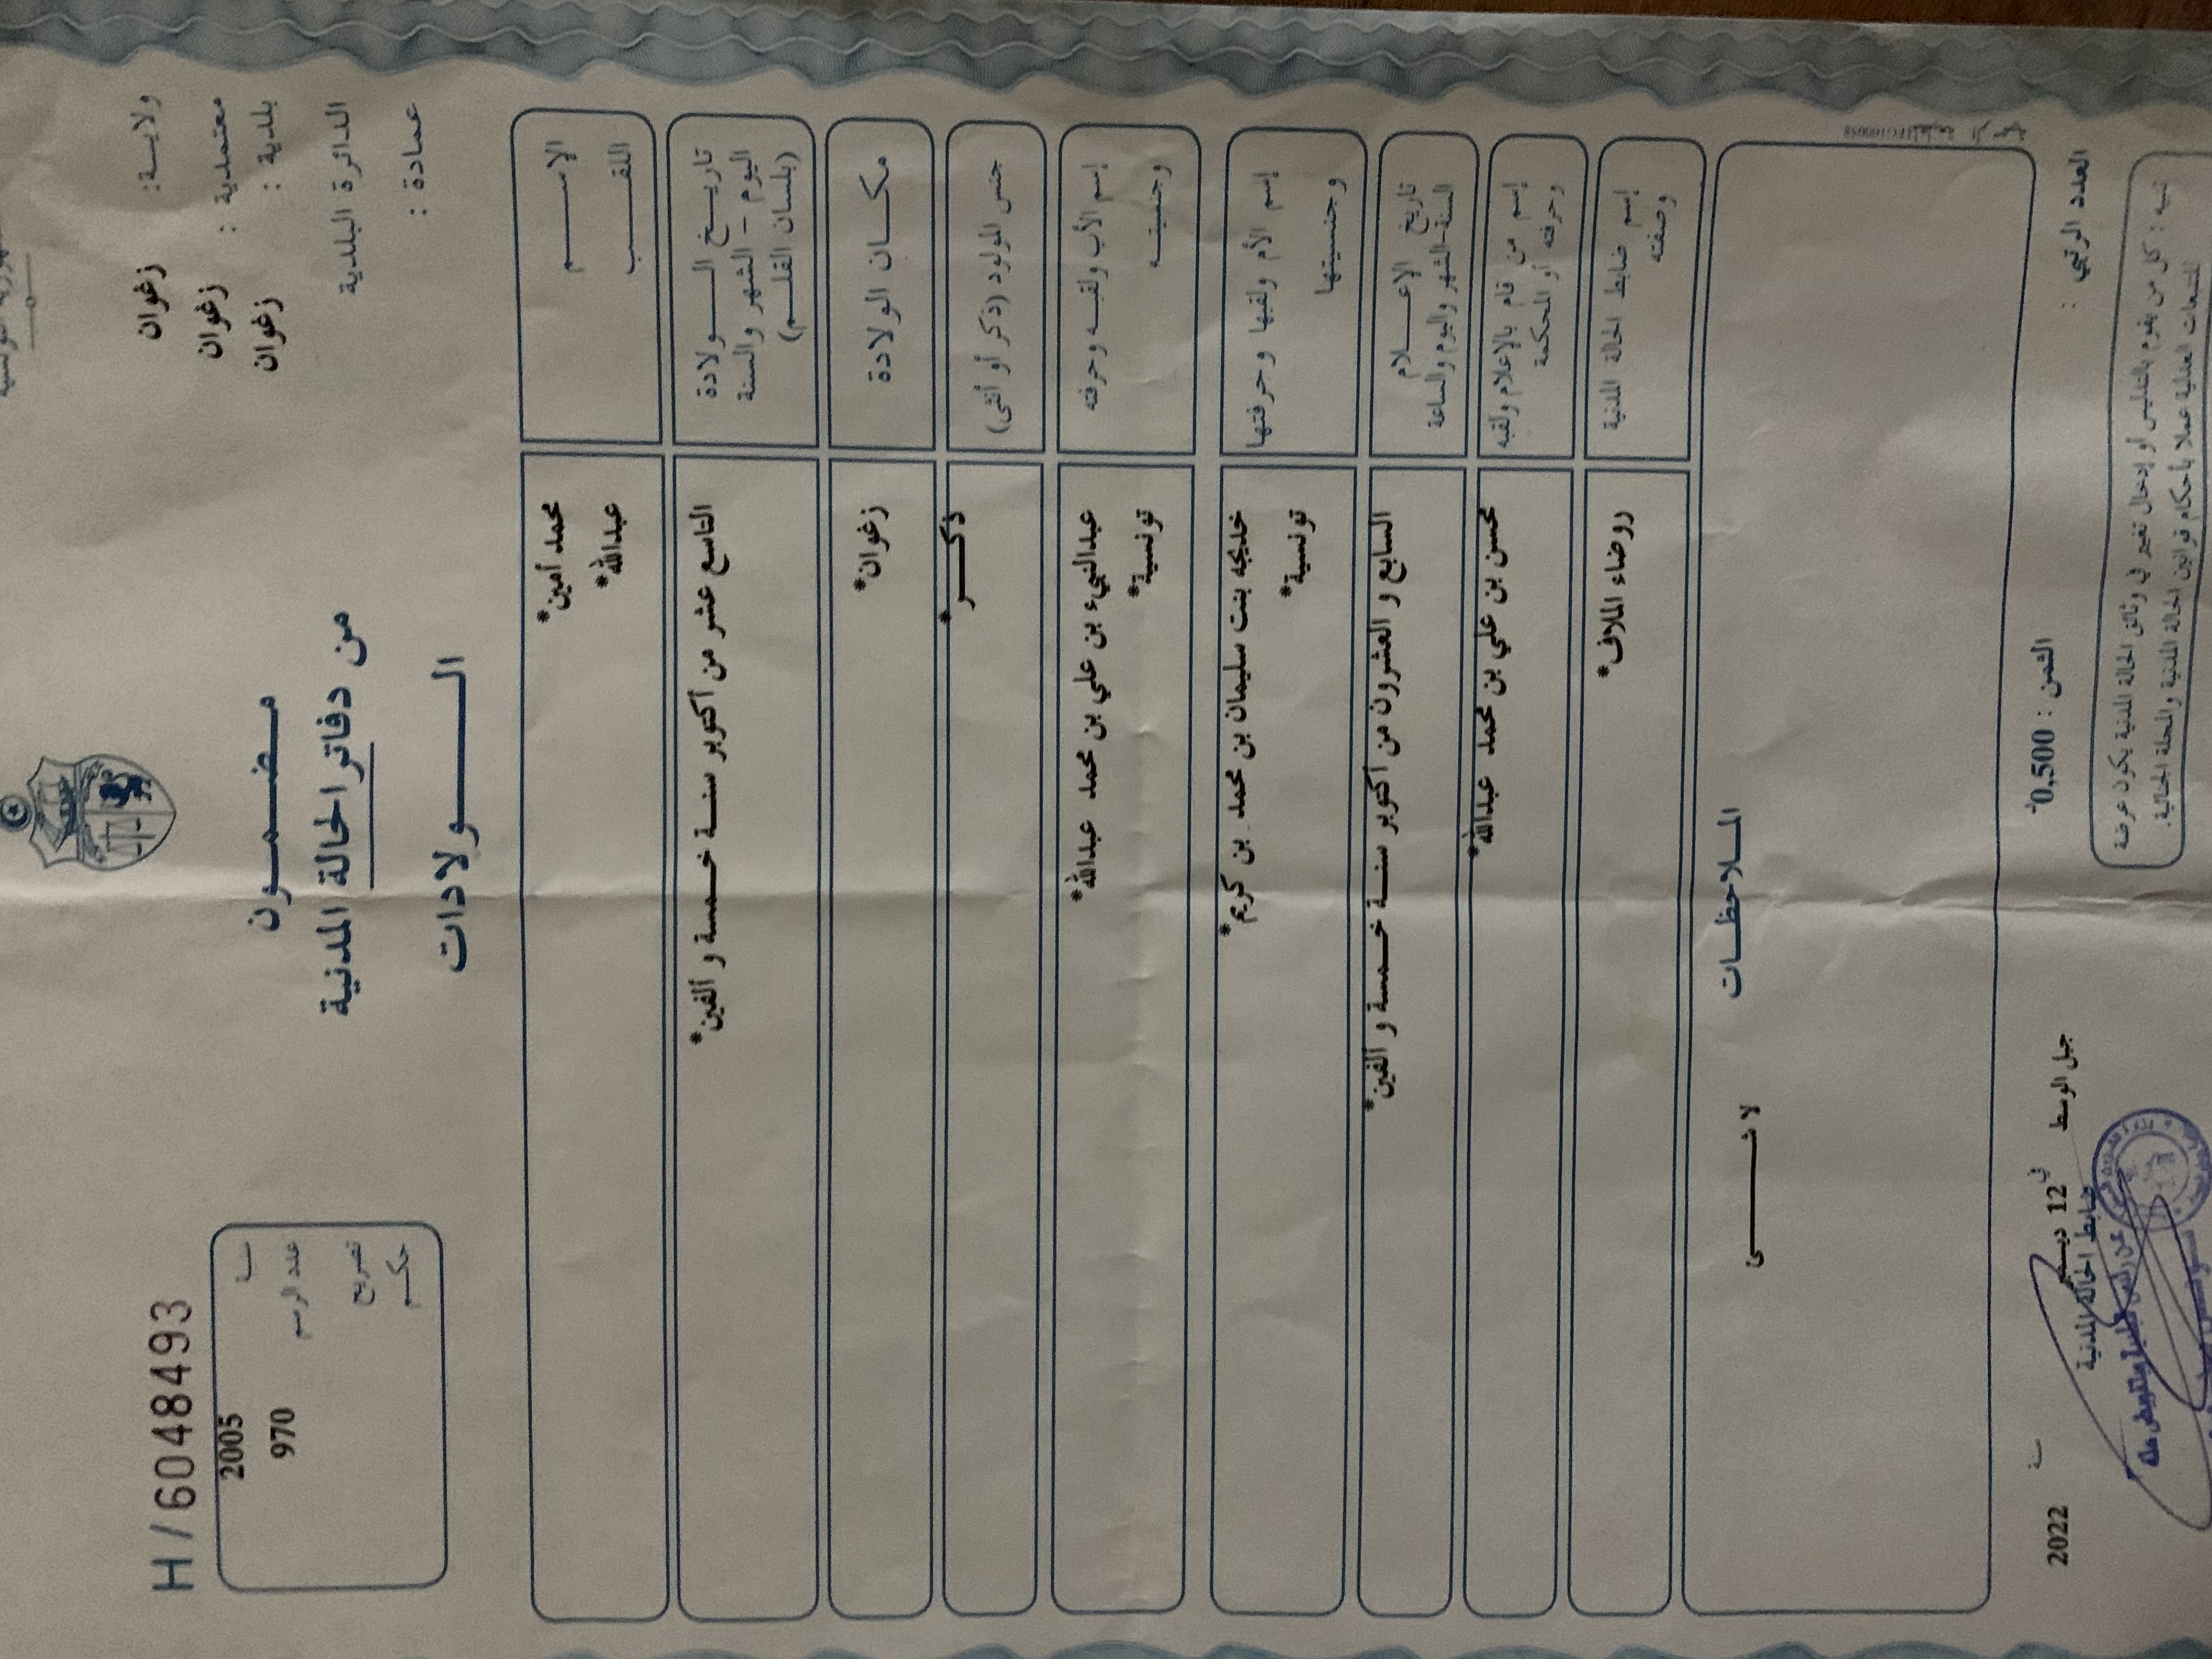 ولايـــة: زغوان
معتمدية : زغوان
بلدية : زغوان
الدائرة البلدية
عمادة :
مـضـمـــون
من دفاتر الحالة المدنية
الــــولادات
H / 6048493
سنة 2005
عدد الرسم 970
تصريح
حكـــم
الإســــــم محمد أمين*
اللقـــــب عبدالله*
تاريـــخ الـــــولادة
اليوم - الشهر والسنة
(بلسان القلـــم)
التاسع عشر من أكتوبر سنـــة خـمـسـة و ألفين*
مكـــان الولادة زغوان*
جنس المولود (ذكر أو أنثى) ذكـــــر*
إسم الأب ولقبـــه وحرفته عبدالنبيء بن علي بن محمد عبدالله*
وجنسيتـــه تونسية*
إسم الأم ولقبها وحرفتها خديجه بنت سليمان بن محمد بن كريم*
وجنسيتها تونسية*
تاريخ الإعـــــلام
السنة-الشهر واليوم والساعة
السابع و العشرون من أكتوبر سنـــة خـمـسـة و ألفين*
إسم من قام بالإعلام ولقبه
وحرفته أو المحكمة
محسن بن علي بن محمد عبدالله*
إسم ضابط الحالة المدنية
وصفته
روضاء الملاف*
المـــلاحظـــات
لا شـــــــى
العدد الرتبي :
الثمن : 0,500
جبل الوسط في 12 ديسمبر سنة 2022
ضابط الحالة المدنية
تنبيه : كل من يقوم بالتدليس أو إدخال تغيير في وثائق الحالة المدنية يكون عرضة
للتتبعات العدلية عملا بأحكام قوانين الحالة المدنية والمجلة الجنائية.